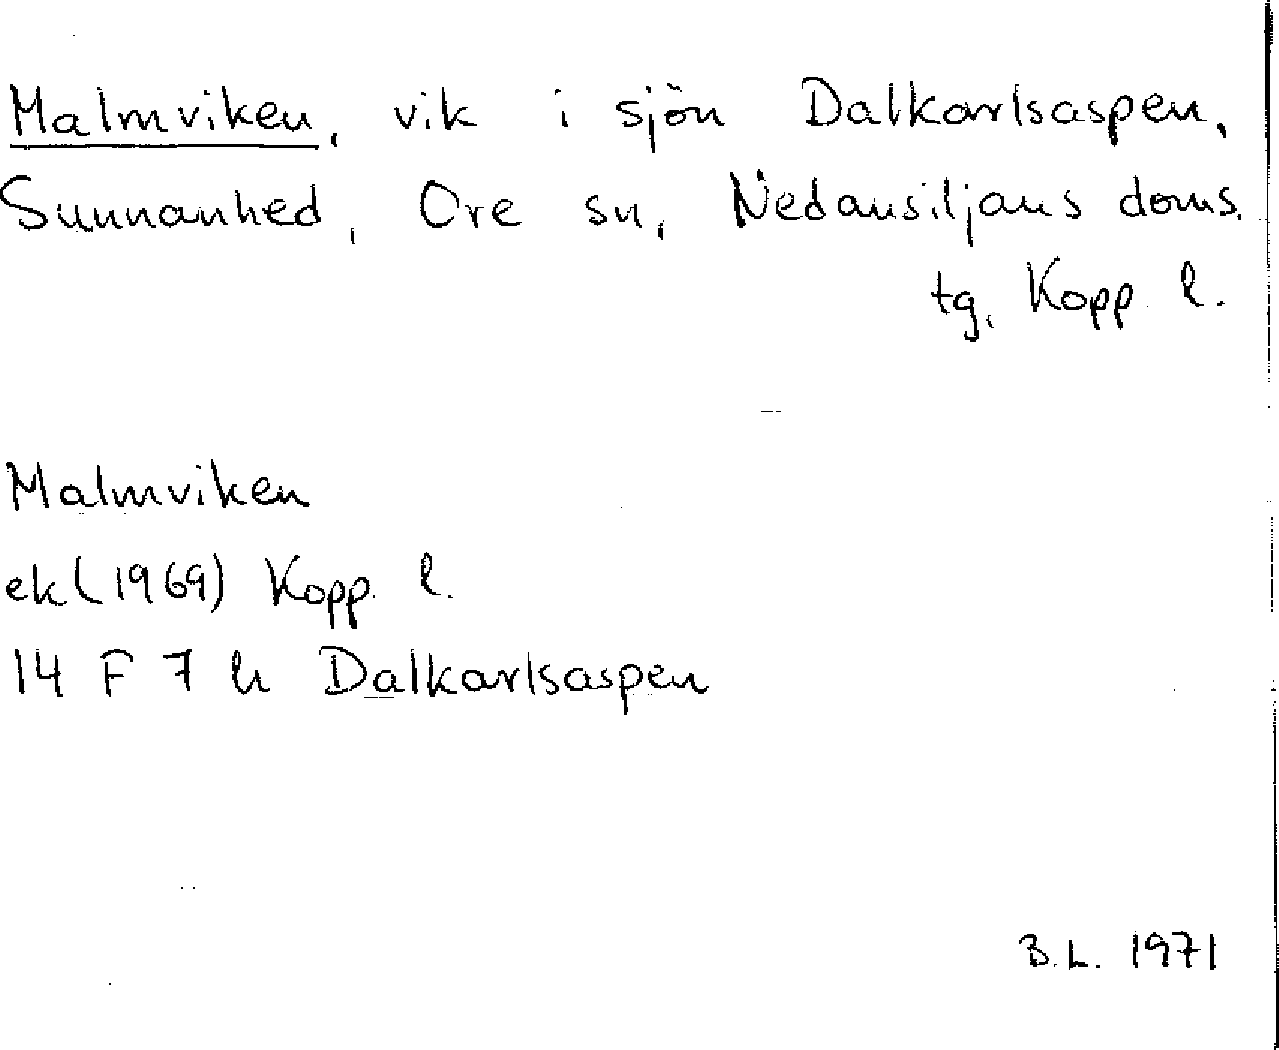 Malmviken, vik i sjön Dalkarlsaspen,
Sunnanhed, Ore sn, Nedansiljans doms.
tg, Kopp. l.
Malmviken
ek (1969) Kopp. l.
14 F 7 h Dalkarlsaspen
B.L. 1971